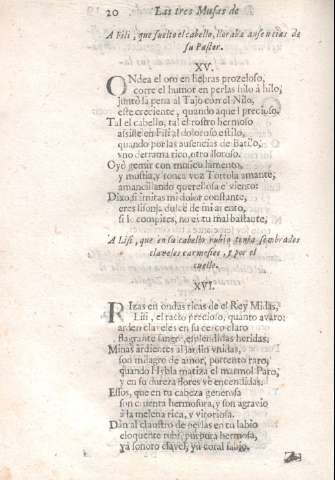 20 Las tres Musas de
A Fili, que suelto el cabello, lloraba ausencias de
su Pastor.
XV.
ONdea el oro en hebras proceloso,
corre el humor en perlas hilo à hilo,
juntò la pena al Tajo con el Nilo,
este creciente, quando aquel precioso.
Tal el cabello, tal el rostro hermoso
assiste en Fili al doloroso estilo,
quando por las ausencias de Batilo,
vno derrama rico, otro lloroso.
Oyò gemir con musico lamento,
y mustia, y ronca voz Tortola amante,
amancillando querellosa el viento:
Dixo, si imitas mi dolor constante,
eres lisonja dulce de mi acento,
si le compites, no es tu mal bastante,
A Lisi, que en su cabello rubio tenia sembrados
claveles carmesies, y por el
cuello.
XVI.
RIzas en ondas ricas de el Rey Midas,
Lisi, el tacto precioso, quanto avaro:
arden claveles en su cerco claro
flagrante sangre, esplendidas heridas.
Minas ardientes al jardin vnidas,
son milagro de amor, portento raro,
quando Hybla matiza el marmol Paro,
y en su dureza flores vè encendidas.
Essos, que en tu cabeza generosa
son cruenta hermosura, y son agravio
à la melena rica, y vitoriosa.
Dan al claustro de perlas en tu labio
eloquente rubi, purpura hermosa,
yà sonoro clavel, yà coral sabio.